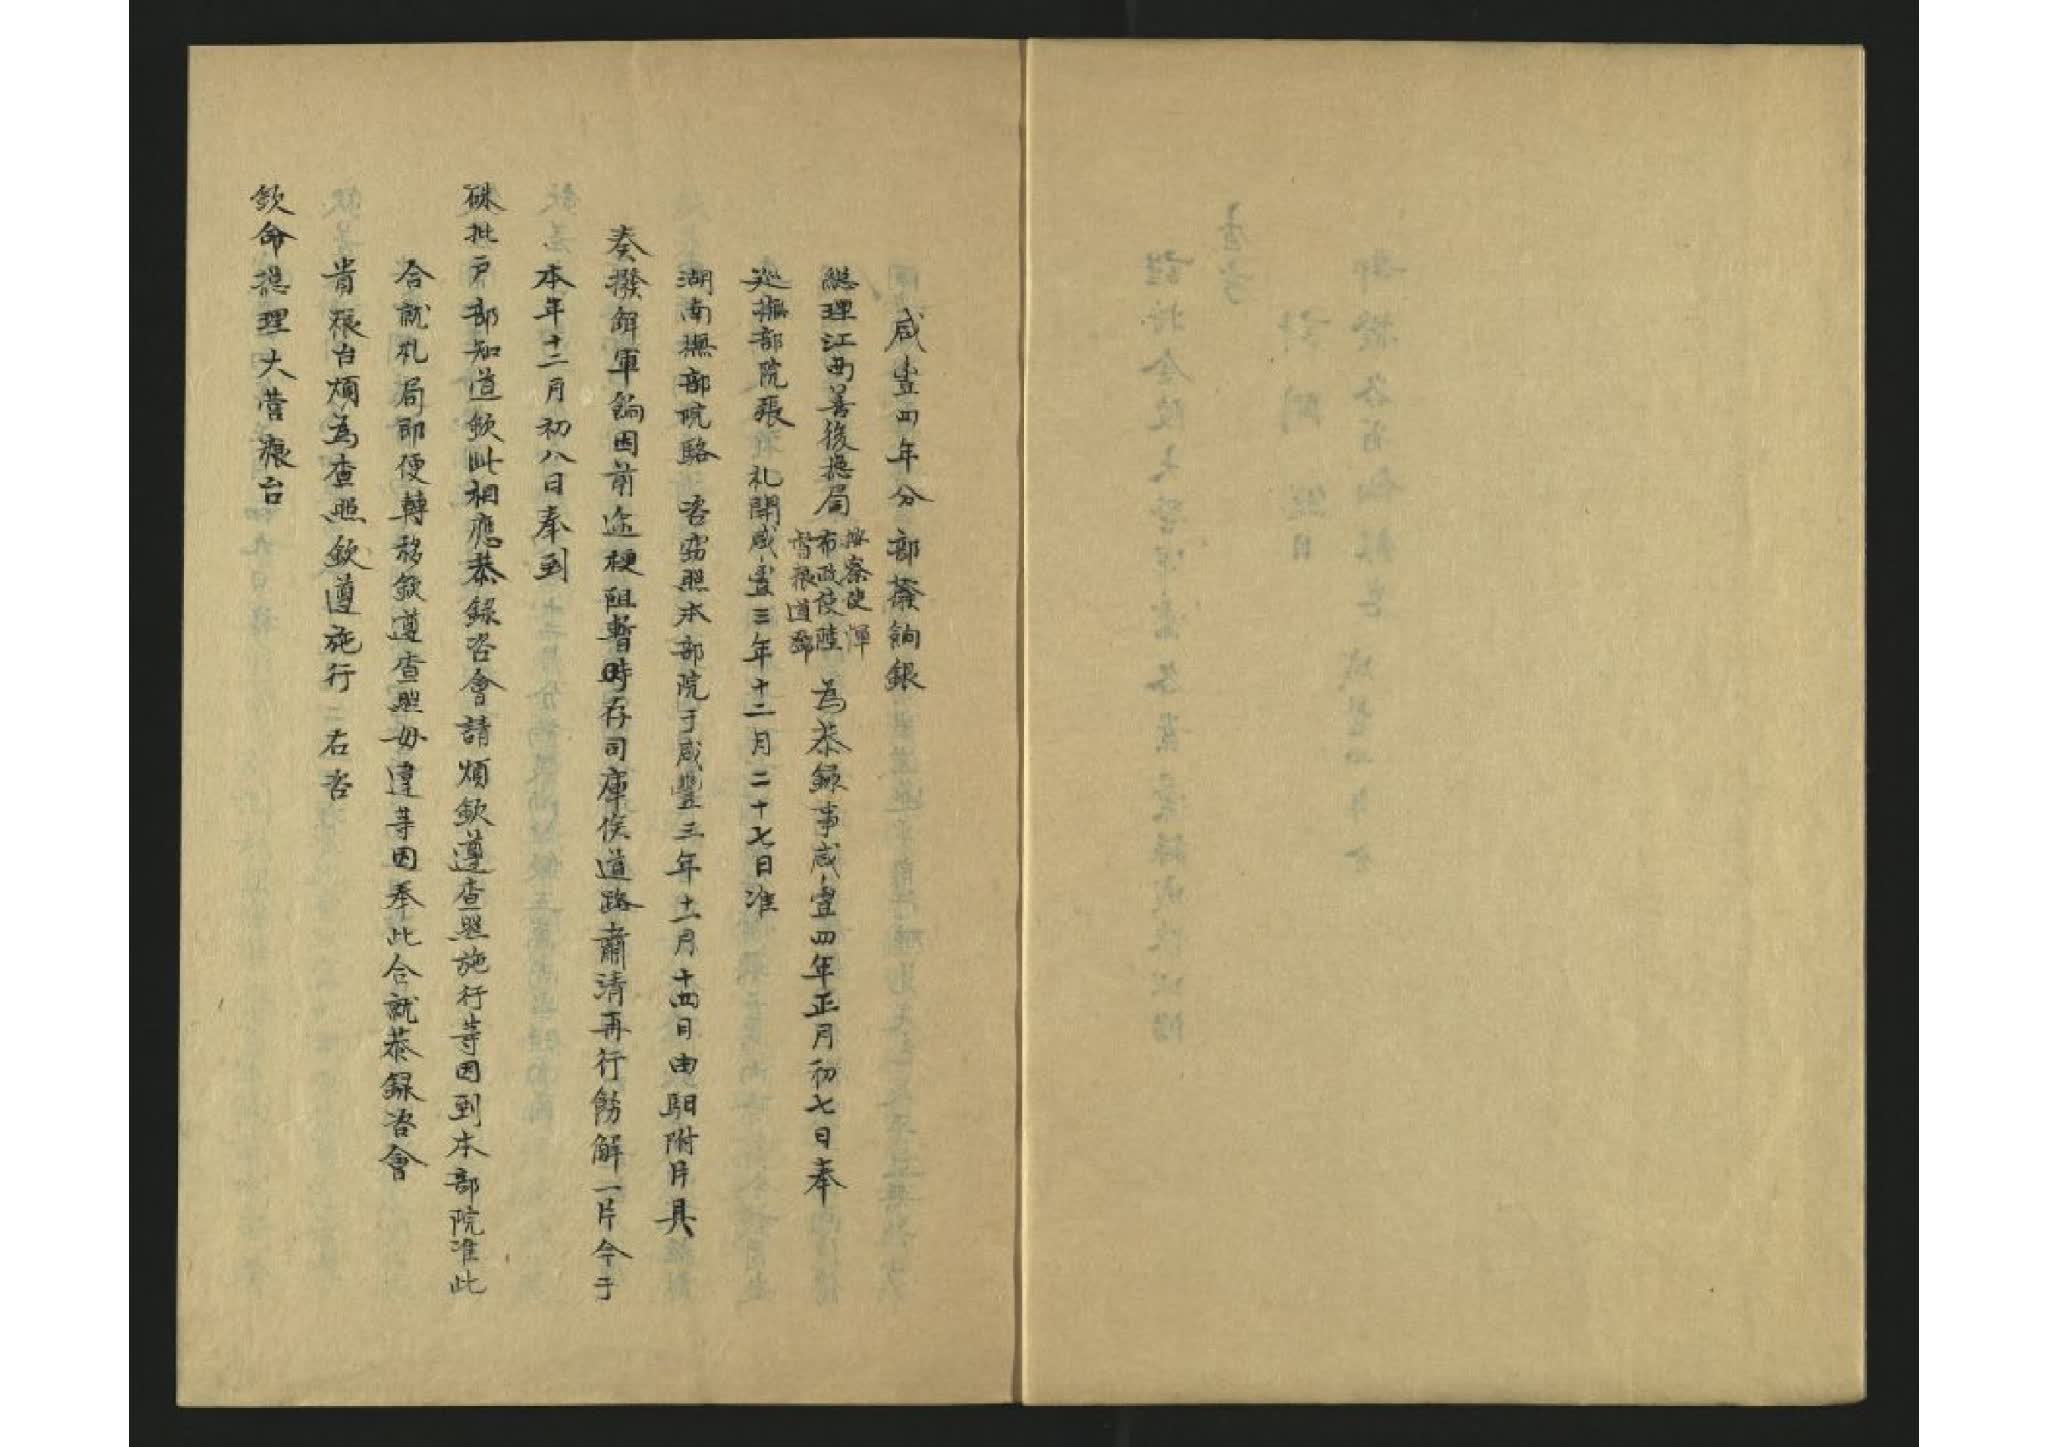 咸豐四年分部撥餉銀
總理江西善後總局
按察使惲
布政使陸
督粮道鄧
為恭錄事咸豐四年正月初七日奉
巡撫部院張 札開咸豐三年十二月二十七日准
湖南撫部院駱 咨窃照本部院于咸豐三年十一月十四日由馹附片具
奏撥解軍餉因前途梗阻暫時存司庫俟道路肅清再行飭解一片今于
本年十二月初八日奉到
硃批户部知道欽此相應恭錄咨會請煩欽遵查照施行等因到本部院准此
合就札局即便轉移欽遵查照毋違等因奉此合就恭錄咨會
貴粮台煩為查照欽遵施行二右咨
欽命總理大營粮台